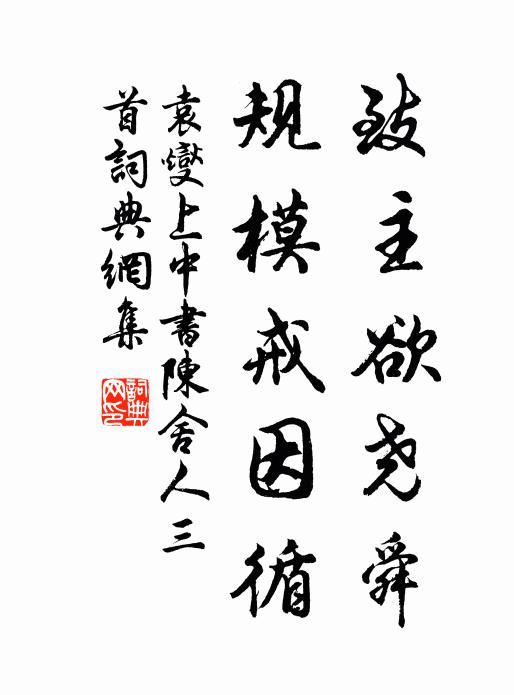 致主欲尧舜
規模戒因循
袁燮上中書陳舍人三
首詞典網集
詞典
网印